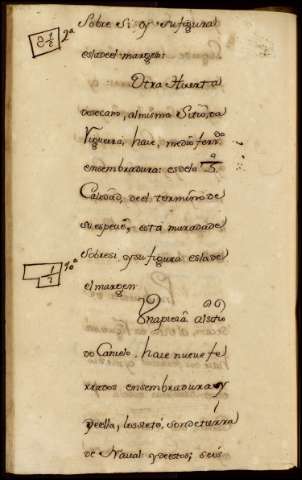 Sobre Si, y su figura
es la de el margen:
Otra Huerta
de secano, al mismo Sitio, da
Figueira; hace, medio ferr.do
en sembradura: es de la 3.a
Calidad, de el termino de
su especie, está murada de
Sobre si, y su figura es la de
el margen
Una pieza al sitio
do Canelo, hace nueve fe
rrados en sembradura y
de ella, los siete, son de tierra
de Naval y destos; seis